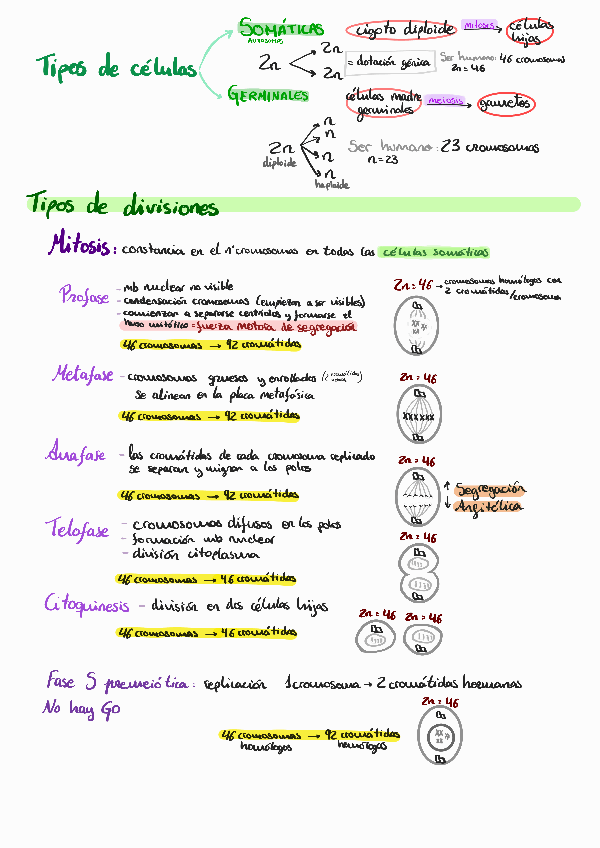 Tipos de células
SOMÁTICAS
AUTOSOMAS
2n
2n
2n
= dotación génica
cigoto diploide
mitosis
células hijas
Ser humano: 46 cromosomas
2n = 46
GERMINALES
células madre germinales
meiosis
gametos
2n
diploide
n
n
n
n
haploide
Ser humano: 23 cromosomas
n = 23
Tipos de divisiones
Mitosis: constancia en el nº cromosomas en todas las células somáticas
Profase
- mb nuclear no visible
- condensación cromosomas (empiezan a ser visibles)
- comienzan a separarse centriolos y formarse el
huso mitótico = fuerza motora de segregación
46 cromosomas → 92 cromátidas
2n = 46 → cromosomas homólogos con
2 cromátidas /cromosoma
Metafase - cromosomas gruesos y enrollados
se alinean en la placa metafásica
46 cromosomas → 92 cromátidas
2n = 46
Anafase - las cromátidas de cada cromosoma replicado
se separan y migran a los polos
46 cromosomas → 92 cromátidas
2n = 46
↑ Segregación
↓ Anfitélica
Telofase
- cromosomas difusos en los polos
- formación mb nuclear
- división citoplasma
46 cromosomas → 46 cromátidas
2n = 46
Citoquinesis - división en dos células hijas
46 cromosomas → 46 cromátidas
2n = 46 2n = 46
Fase S premeiótica: replicación 1 cromosoma → 2 cromátidas hermanas
No hay G0
46 cromosomas → 92 cromátidas
homólogos homólogos
2n = 46